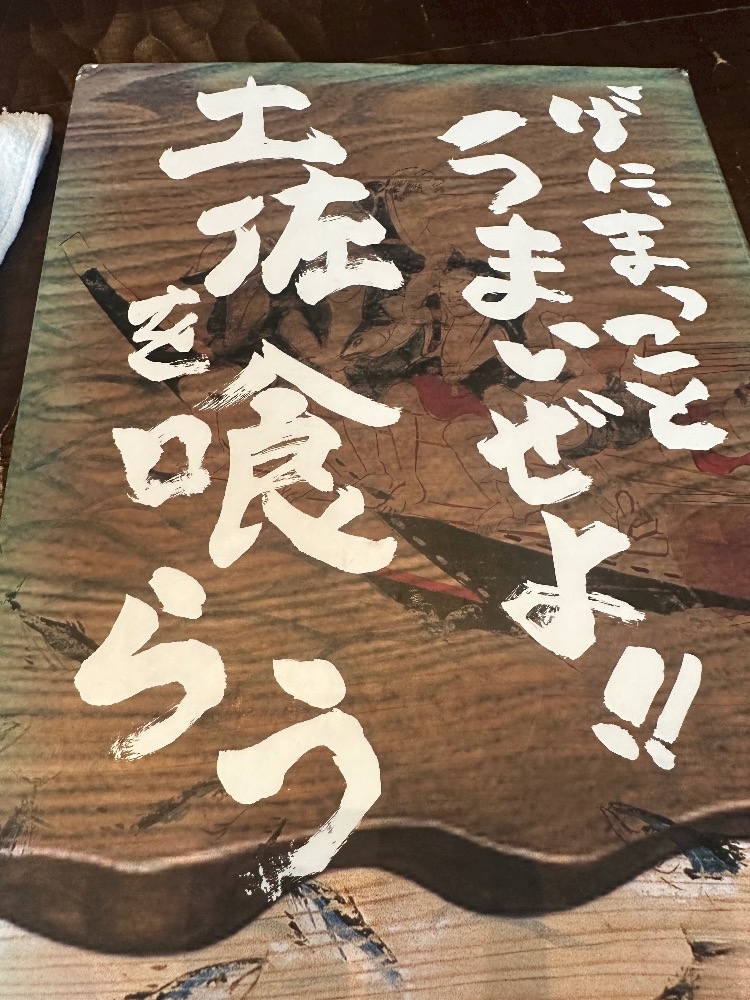 げにまっこと
うまいぜよ!!
土佐
を喰らう